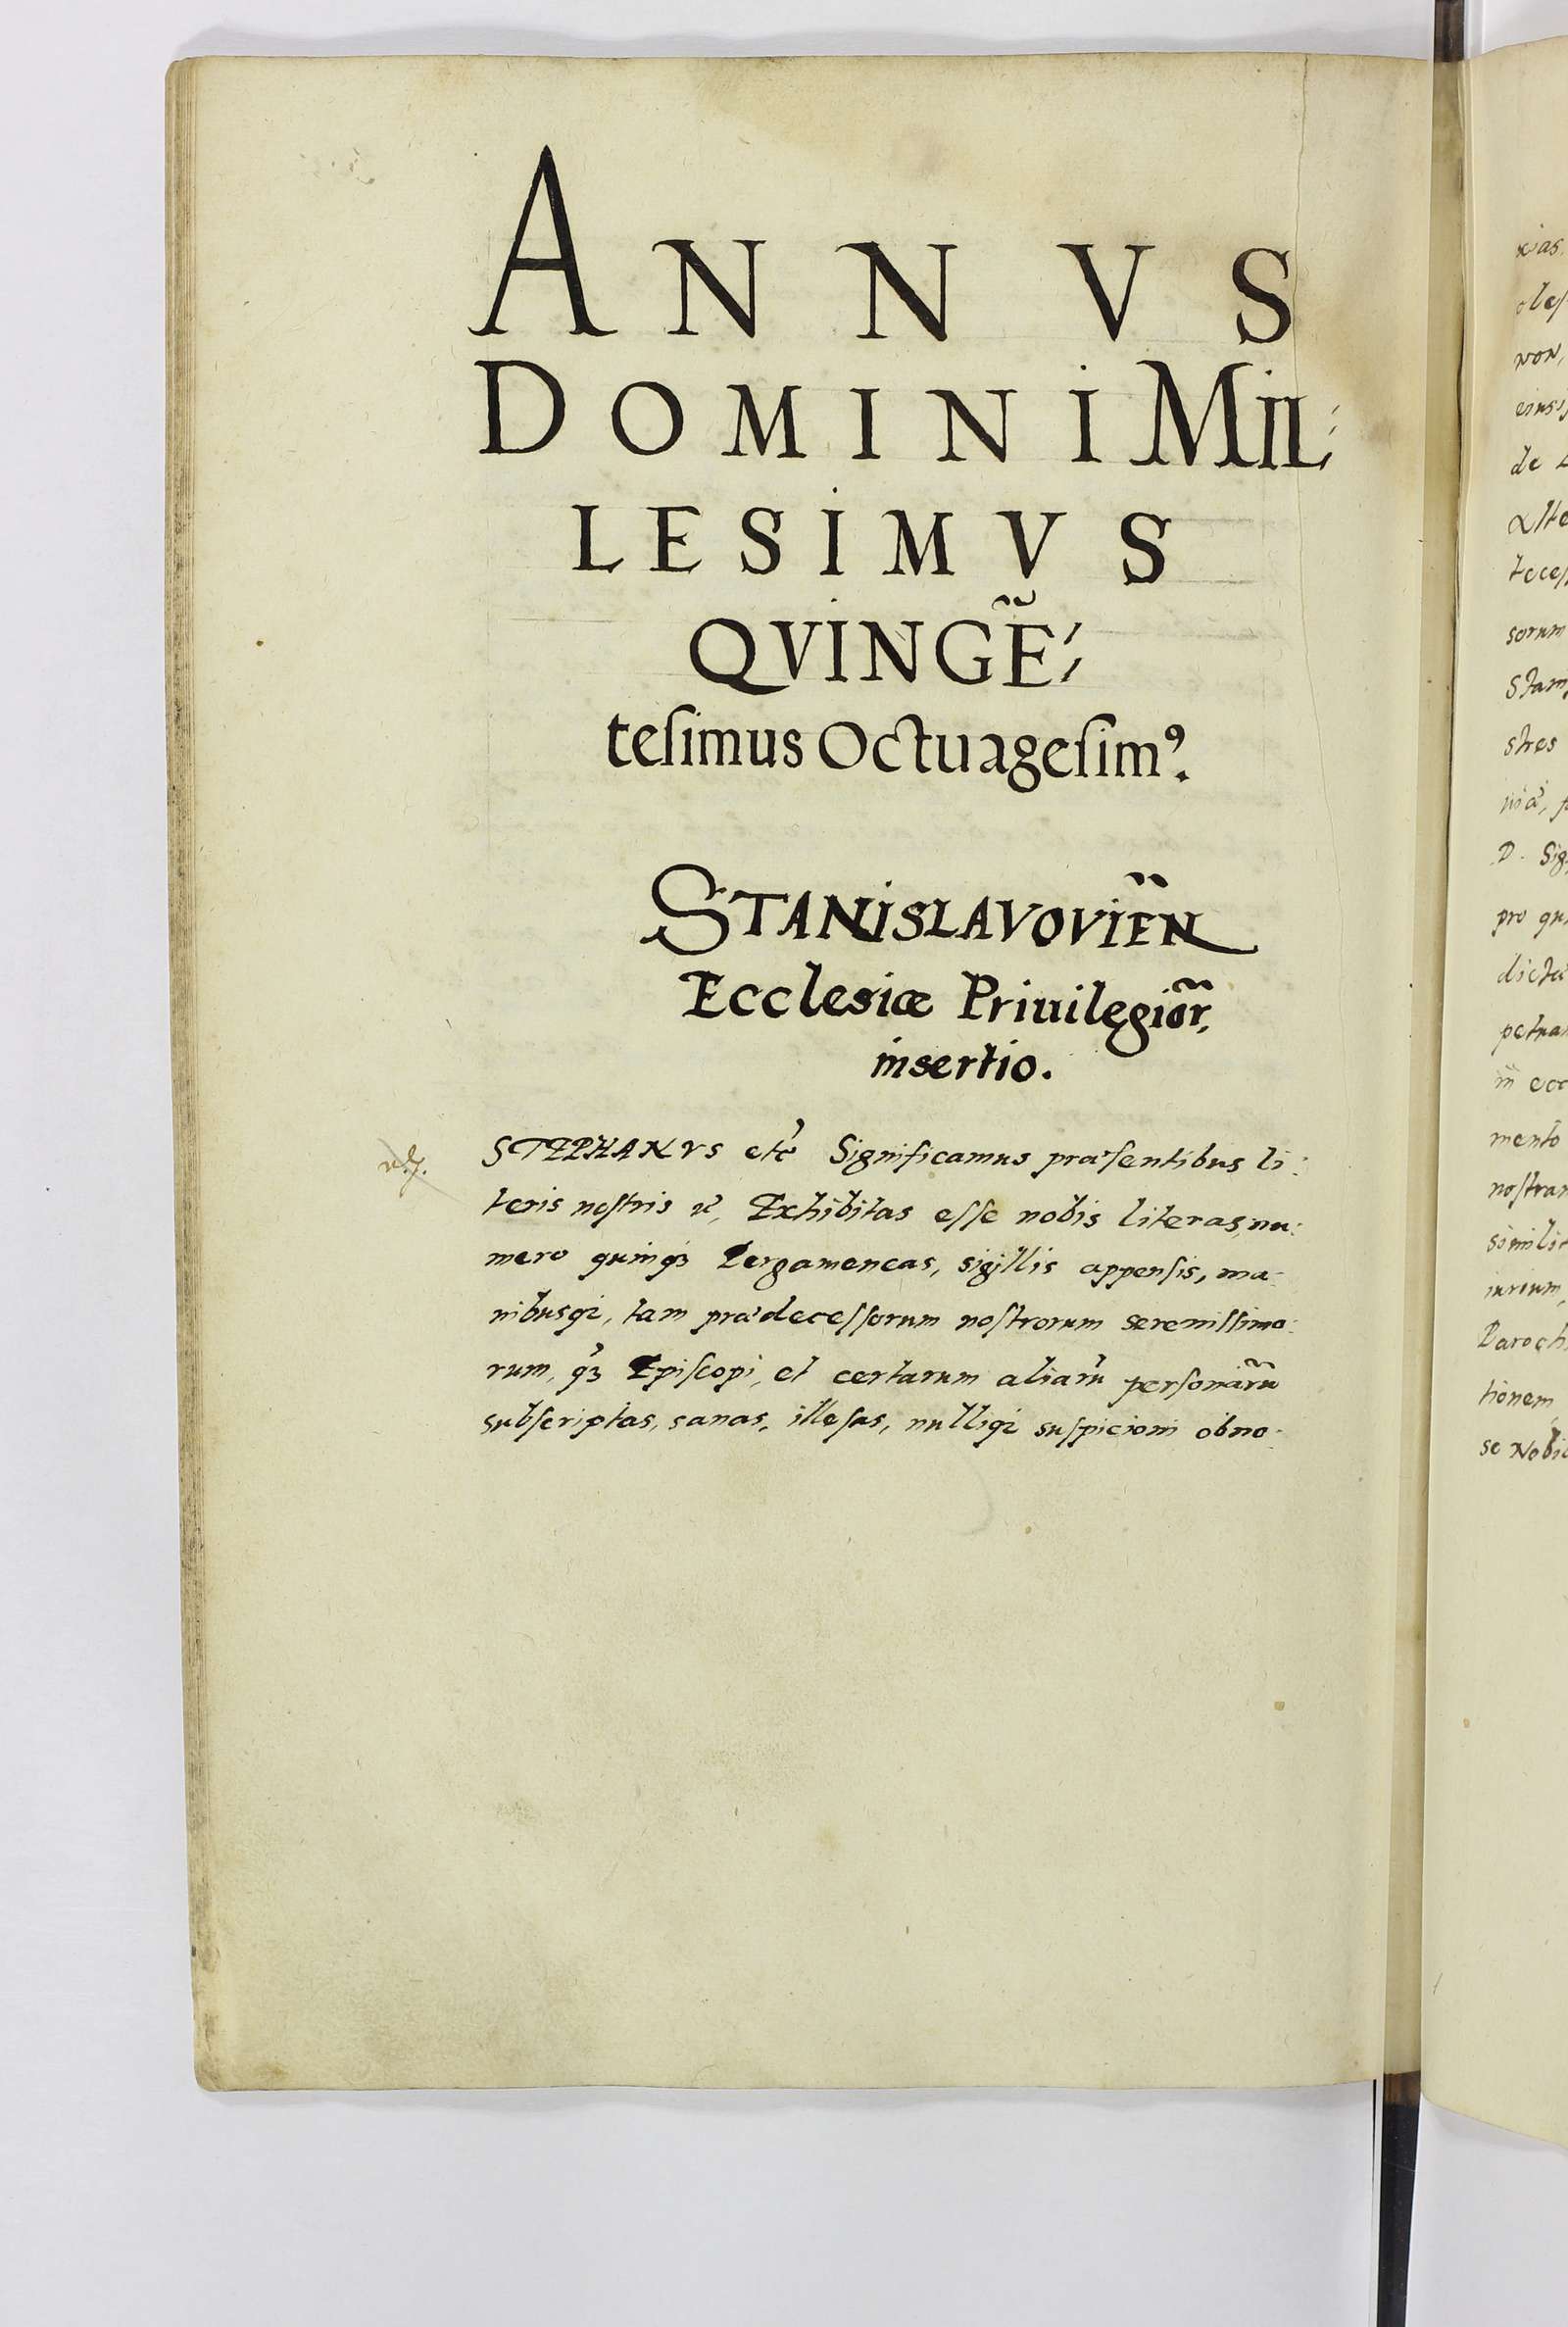 ANNVS
DOMINI MIL⸗
LESIMVS
QVINGẼ⸗
tesimus Octuagesimꝰ.
STANISLAVOVIEÑ
Ecclesiæ Priuilegior̃,
insertio.
STEPHANVS etc̃ Significamus præsentibus li:
teris nostris &, Exhibitas esse nobis literas, nu:
mero quinqꝫ Pergameneas, sigillis appensis, ma:
nibusqꝫ, tam prædecessorum nostrorum serenissimo:
rum, qꝫ Episcopi, et certarum aliarũ personarũ
subscriptas, sanas, illesas, nulliqꝫ suspicioni obno:
xias
oles
non,
eius
de
Alte
teces
sorum
Stam
stres
niã,
D. Sig
pro qu
dictũ
petua
in ecc
mento
nostra
simili
iurium,
Paroch
tionem,
se Nobi